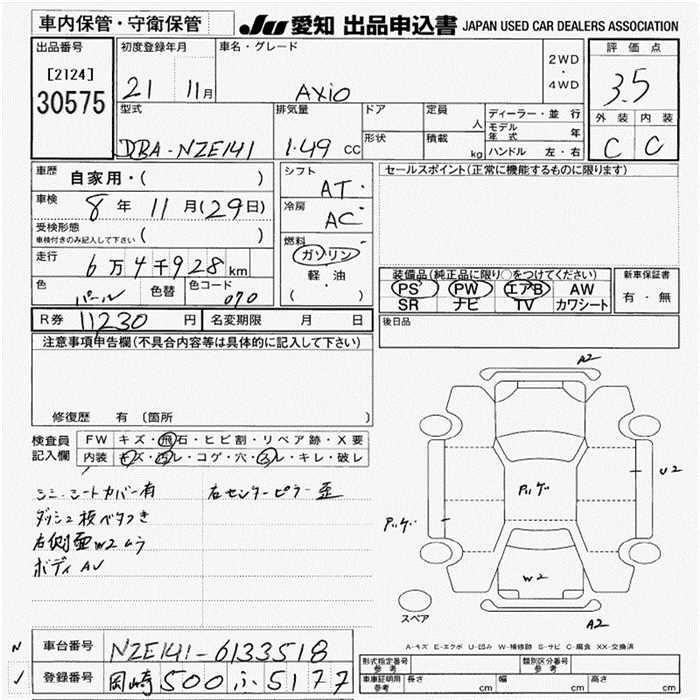 車内保管・守衛保管
JU 愛知 出品申込書 JAPAN USED CAR DEALERS ASSOCIATION
出品番号
[2124]
30575
初度登録年月
21 11月
車名・グレード
AXiO
2WD
・
4WD
評価点
3.5
外装 内装
C C
型式
DBA-NZE141
排気量
1.49 CC
ドア
定員
人
形状
積載
kg
ディーラー・並 行
モデル年式 年
ハンドル 左・右
車歴
自家用・( )
車検
8 年 11 月(29日)
受検形態
車検付きのみ記入して下さい ( )
走行
6万4千928km
色
パール
色替
色コード
070
シフト
AT
冷房
AC
燃料
ガソリン
軽・油
( )
セールスポイント(正常に機能するものに限ります)
装備品(純正品に限り○をつけてください)
PS PW エアB AW
SR ナビ TV カワシート
新車保証書
有・無
R券 11230 円
名変期限 月 日
後日品
注意事項申告欄(不具合内容等は具体的に記入して下さい)
修復歴 有 (箇所 )
検査員記入欄
FW キズ・飛石・ヒビ割・リペア跡・X要
内装 キズ・汚レ・コゲ・穴・スレ・キレ・破レ
シミ・シートカバー有
ダッシュ板ベタつき
右側歪W2ムラ
ボディAU
右センターピラー歪
A2
U2
Pルゲ
Pルゲ
W2
A2
スペア
A-キズ E-エクボ U-凹み W-補修跡 S-サビ C-腐食 XX-交換済
車台番号 NZE141-6133518
登録番号 岡崎 500 ふ 5177
型式指定番号 参考
類別区分番号 参考
車庫証明用 参考 長さ cm 幅 cm 高さ cm